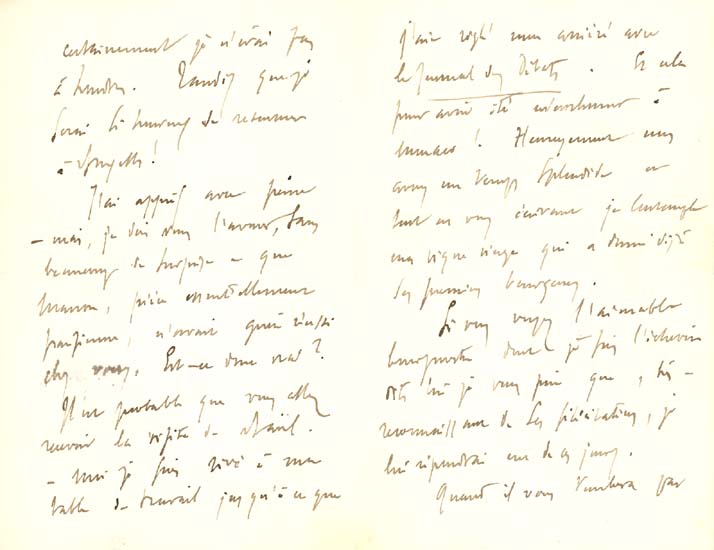 certainement je n'irai pas
à Londres. Tandis que je
serai si heureux de retourner
à Bruxelles!
J'ai appris avec peine
- mais, je dois vous l'avouer, sans
beaucoup de surprise - que
Manon, pièce essentiellement
parisienne, n'avait guère réussi
chez vous. Est-ce donc vrai?
Il est probable que vous allez
recevoir la visite de
- moi je suis rivé à ma
table de travail jusqu'à ce que
j'aie réglé mon arriéré avec
le Journal des Débats. Et cela
pour avoir été
! Heureusement nous
avons un temps splendide et
tout en vous écrivant je contemple
ma vigne vierge qui a donné déjà
ses premiers bourgeons.
Si vous voyez l'aimable
dont je suis
dites lui je vous prie que, très
reconnaissant de ses félicitations, je
lui répondrai un de ces jours.
Quand il vous tombera par